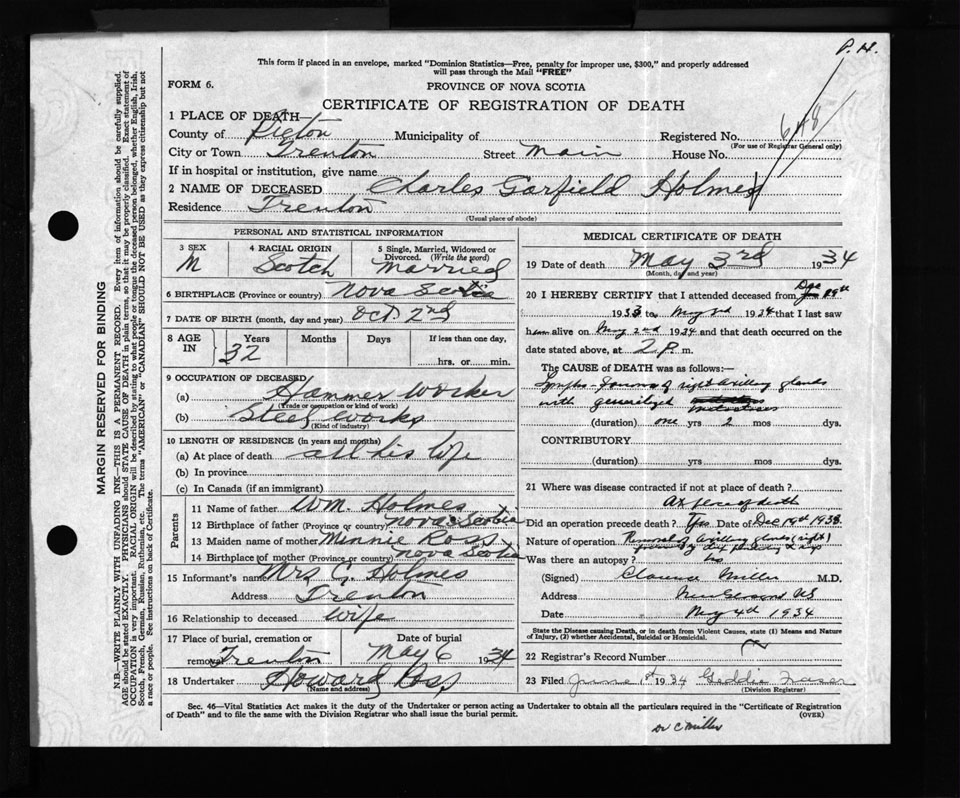 P. H.
This form if placed in an envelope, marked "Dominion Statistics—Free, penalty for improper use, $300," and properly addressed
will pass through the Mail "FREE"
FORM 6.
PROVINCE OF NOVA SCOTIA
CERTIFICATE OF REGISTRATION OF DEATH
1 PLACE OF DEATH—
County of Pictou Municipality of Registered No. 648
(For use of Registrar General only)
City or Town Trenton Street Main House No.
If in hospital or institution, give name
2 NAME OF DECEASED Charles Garfield Holmes
Residence Trenton
(Usual place of abode)
PERSONAL AND STATISTICAL INFORMATION
3 SEX 4 RACIAL ORIGIN 5 Single, Married, Widowed or
Divorced. (Write the word)
M Scotch Married
6 BIRTHPLACE (Province or country) Nova Scotia
7 DATE OF BIRTH (month, day and year) Oct. 2nd
8 AGE IN Years Months Days If less than one day,
32 hrs. or min.
9 OCCUPATION OF DECEASED
(a) Hammer Worker
(Trade or occupation or kind of work)
(b) Steel Works
(Kind of industry)
10 LENGTH OF RESIDENCE (in years and months)
(a) At place of death all his life
(b) In province
(c) In Canada (if an immigrant)
Parents
11 Name of father Wm. Holmes
12 Birthplace of father (Province or country) Nova Scotia
13 Maiden name of mother Minnie Ross
14 Birthplace of mother (Province or country) Nova Scotia
15 Informant's name Mrs C. Holmes
Address Trenton
16 Relationship to deceased wife
17 Place of burial, cremation or Date of burial
removal Trenton May 6 1934
18 Undertaker Howard Ross
(Name and address)
MEDICAL CERTIFICATE OF DEATH
19 Date of death May 3rd 1934
(Month, day and year)
20 I HEREBY CERTIFY that I attended deceased from Dec 19th
1933 to May 3rd 1934 that I last saw
him alive on May 2nd 1934 and that death occurred on
date stated above, at 2 P. m.
The CAUSE OF DEATH was as follows:—
Lympho-Sarcoma of right axillary glands
with generalized
(duration) one yrs 2 mos dys.
CONTRIBUTORY
(duration) yrs mos dys.
21 Where was disease contracted if not at place of death?
At place of death
Did an operation precede death? Yes Date of Dec 19th 1933.
Nature of operation Removal of axillary glands (right)
Was there an autopsy? No
(Signed) Clarence Miller M.D.
Address New Glasgow NS
Date May 4th 1934
State the Disease causing Death, or in death from Violent Causes, state (1) Means and Nature
of Injury, (2) whether Accidental, Suicidal or Homicidal.
22 Registrar's Record Number
23 Filed June 1st 1934 Geddie Fraser
(Division Registrar)
Sec. 46—Vital Statistics Act makes it the duty of the Undertaker or person acting as Undertaker to obtain all the particulars required in the "Certificate of Registration
of Death" and to file the same with the Division Registrar who shall issue the burial permit. (OVER)
Dr C Miller
MARGIN RESERVED FOR BINDING
N.B.—WRITE PLAINLY WITH UNFADING INK—THIS IS A PERMANENT RECORD. Every item of information should be carefully supplied.
AGE should be stated EXACTLY. PHYSICIANS should STATE CAUSE OF DEATH in plain terms, so that it may be properly classified. Exact statement of
OCCUPATION is very important. RACIAL ORIGIN will be described by stating to what people or tongue the deceased person belonged, whether English, Irish,
Scotch, French, German, Russian, Ruthenian, etc. The terms "AMERICAN" or "CANADIAN" SHOULD NOT BE USED as they express citizenship but not
a race or people. See instructions on back of Certificate.